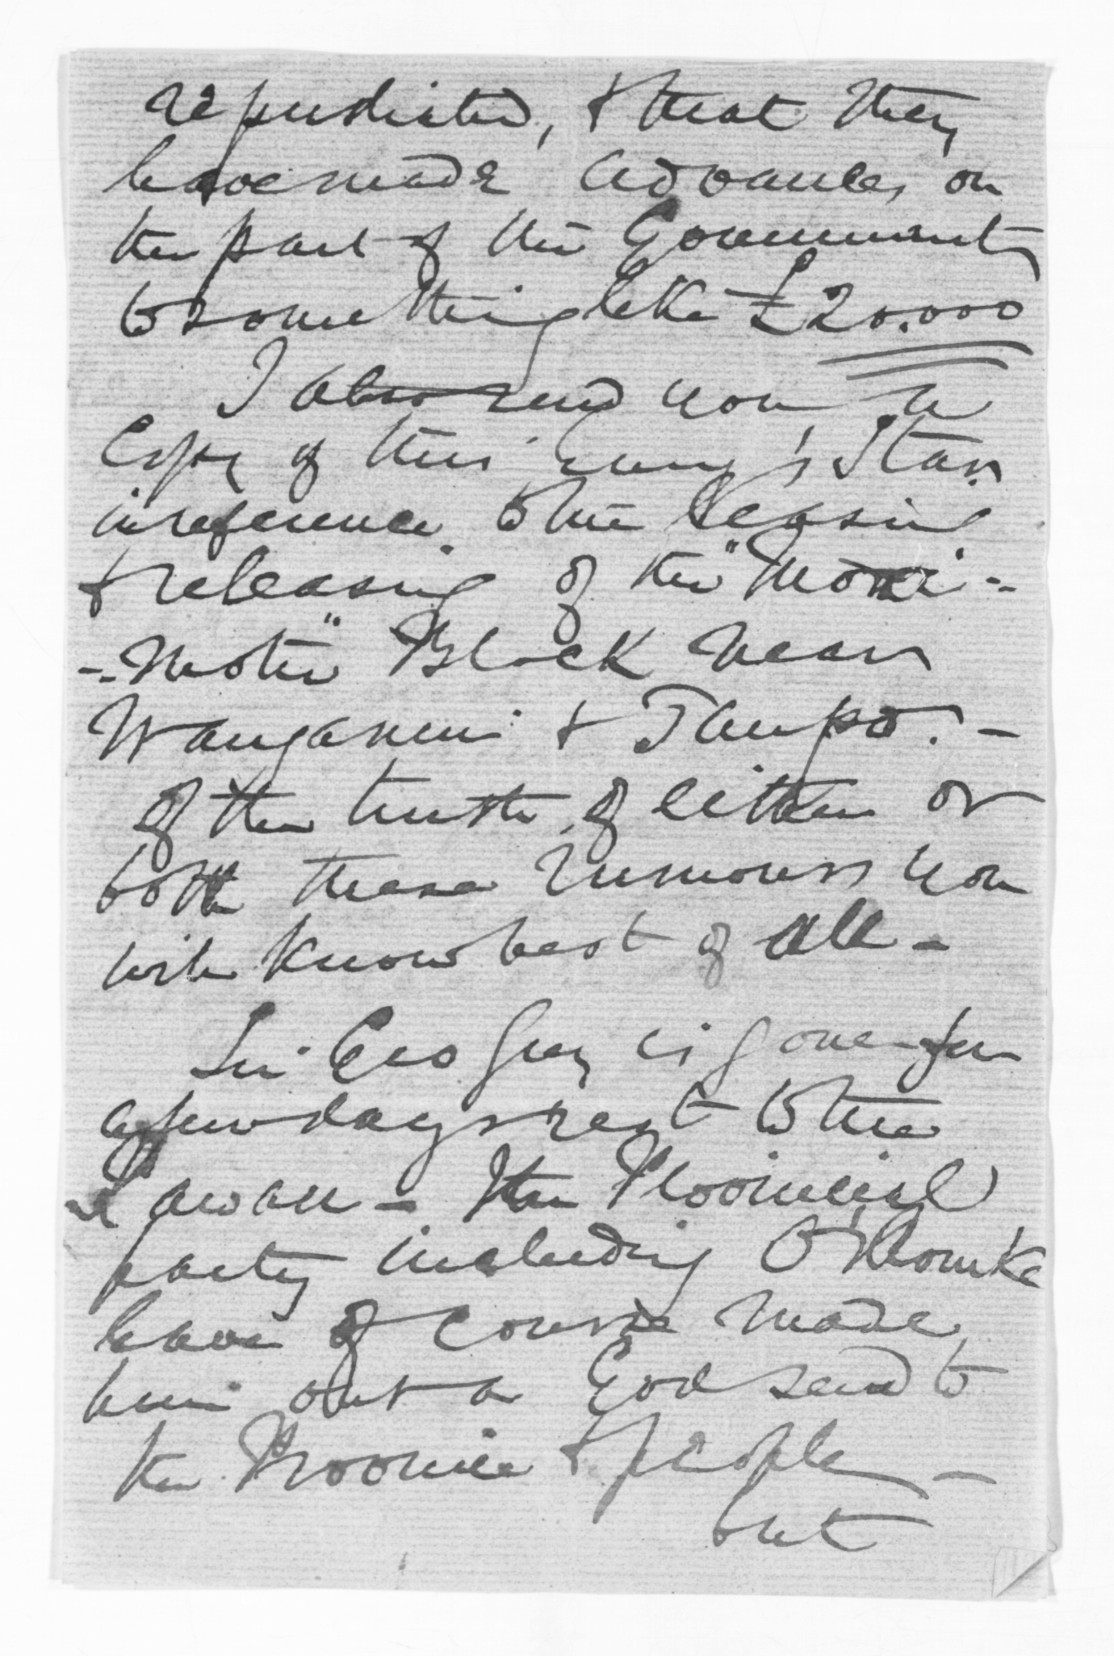 repudiated, & that they
have made advances on
the part of the Government
to something like £20.000
I also send you a
Copy of this evng's Star
in reference to the leasing
& releasing of the "Mori-
-motu" Block near
Wanganui & Taupo. -
of the truth of either or
both these rumours you
will know best of all -
Sir Geo Grey is gone for
a few days rest to the
Kawau - The Provincial
party including O'Rourke
have of course made
him out a God send to
the Province & people -
but